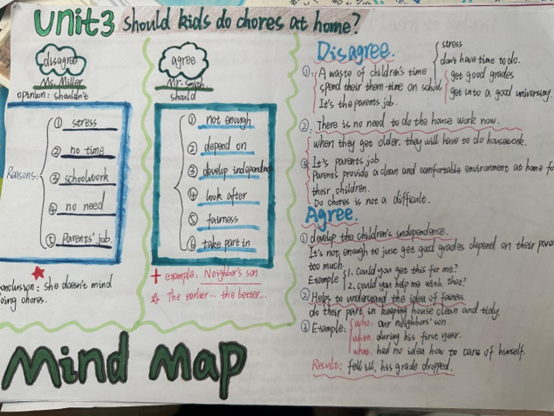 unit3 should kids do chores at home?
disagree
Ms. Miller
opinion: shouldn't
Reasons:
① stress
② no time
③ schoolwork
④ no need
⑤ Parents' job.
conclusion: she doesn't mind
doing chores.
agree
Mr. Smith
should
① not enough
② depend on
③ develop independence
④ look after
⑤ fairness
⑥ take part in
+ example: Neighbor's son
The earlier... the better...
Mind Map
Disagree.
① A waste of children's time
stress
don't have time to do.
spend their time on school
get good grades
get into a good university
It's the parents job.
② There is no need to do the house work now.
when they get older. they will have to do housework.
③ It's parents job
Parents provide a clean and comfortable environment at home for
their children.
Do chores is not a difficult.
Agree.
① develop the children's independence.
It's not enough to just get good grades depend on their parents
too much
Example 1. Could you get this for me?
2. could you help me with that?
② Helps to understand the idea of fairness
do their parts in keeping house clean and tidy
③ Example: who: our neighbors' son
when. during his first year.
what. had no idea how to care of himself.
Result: fell ill, his grade dropped.